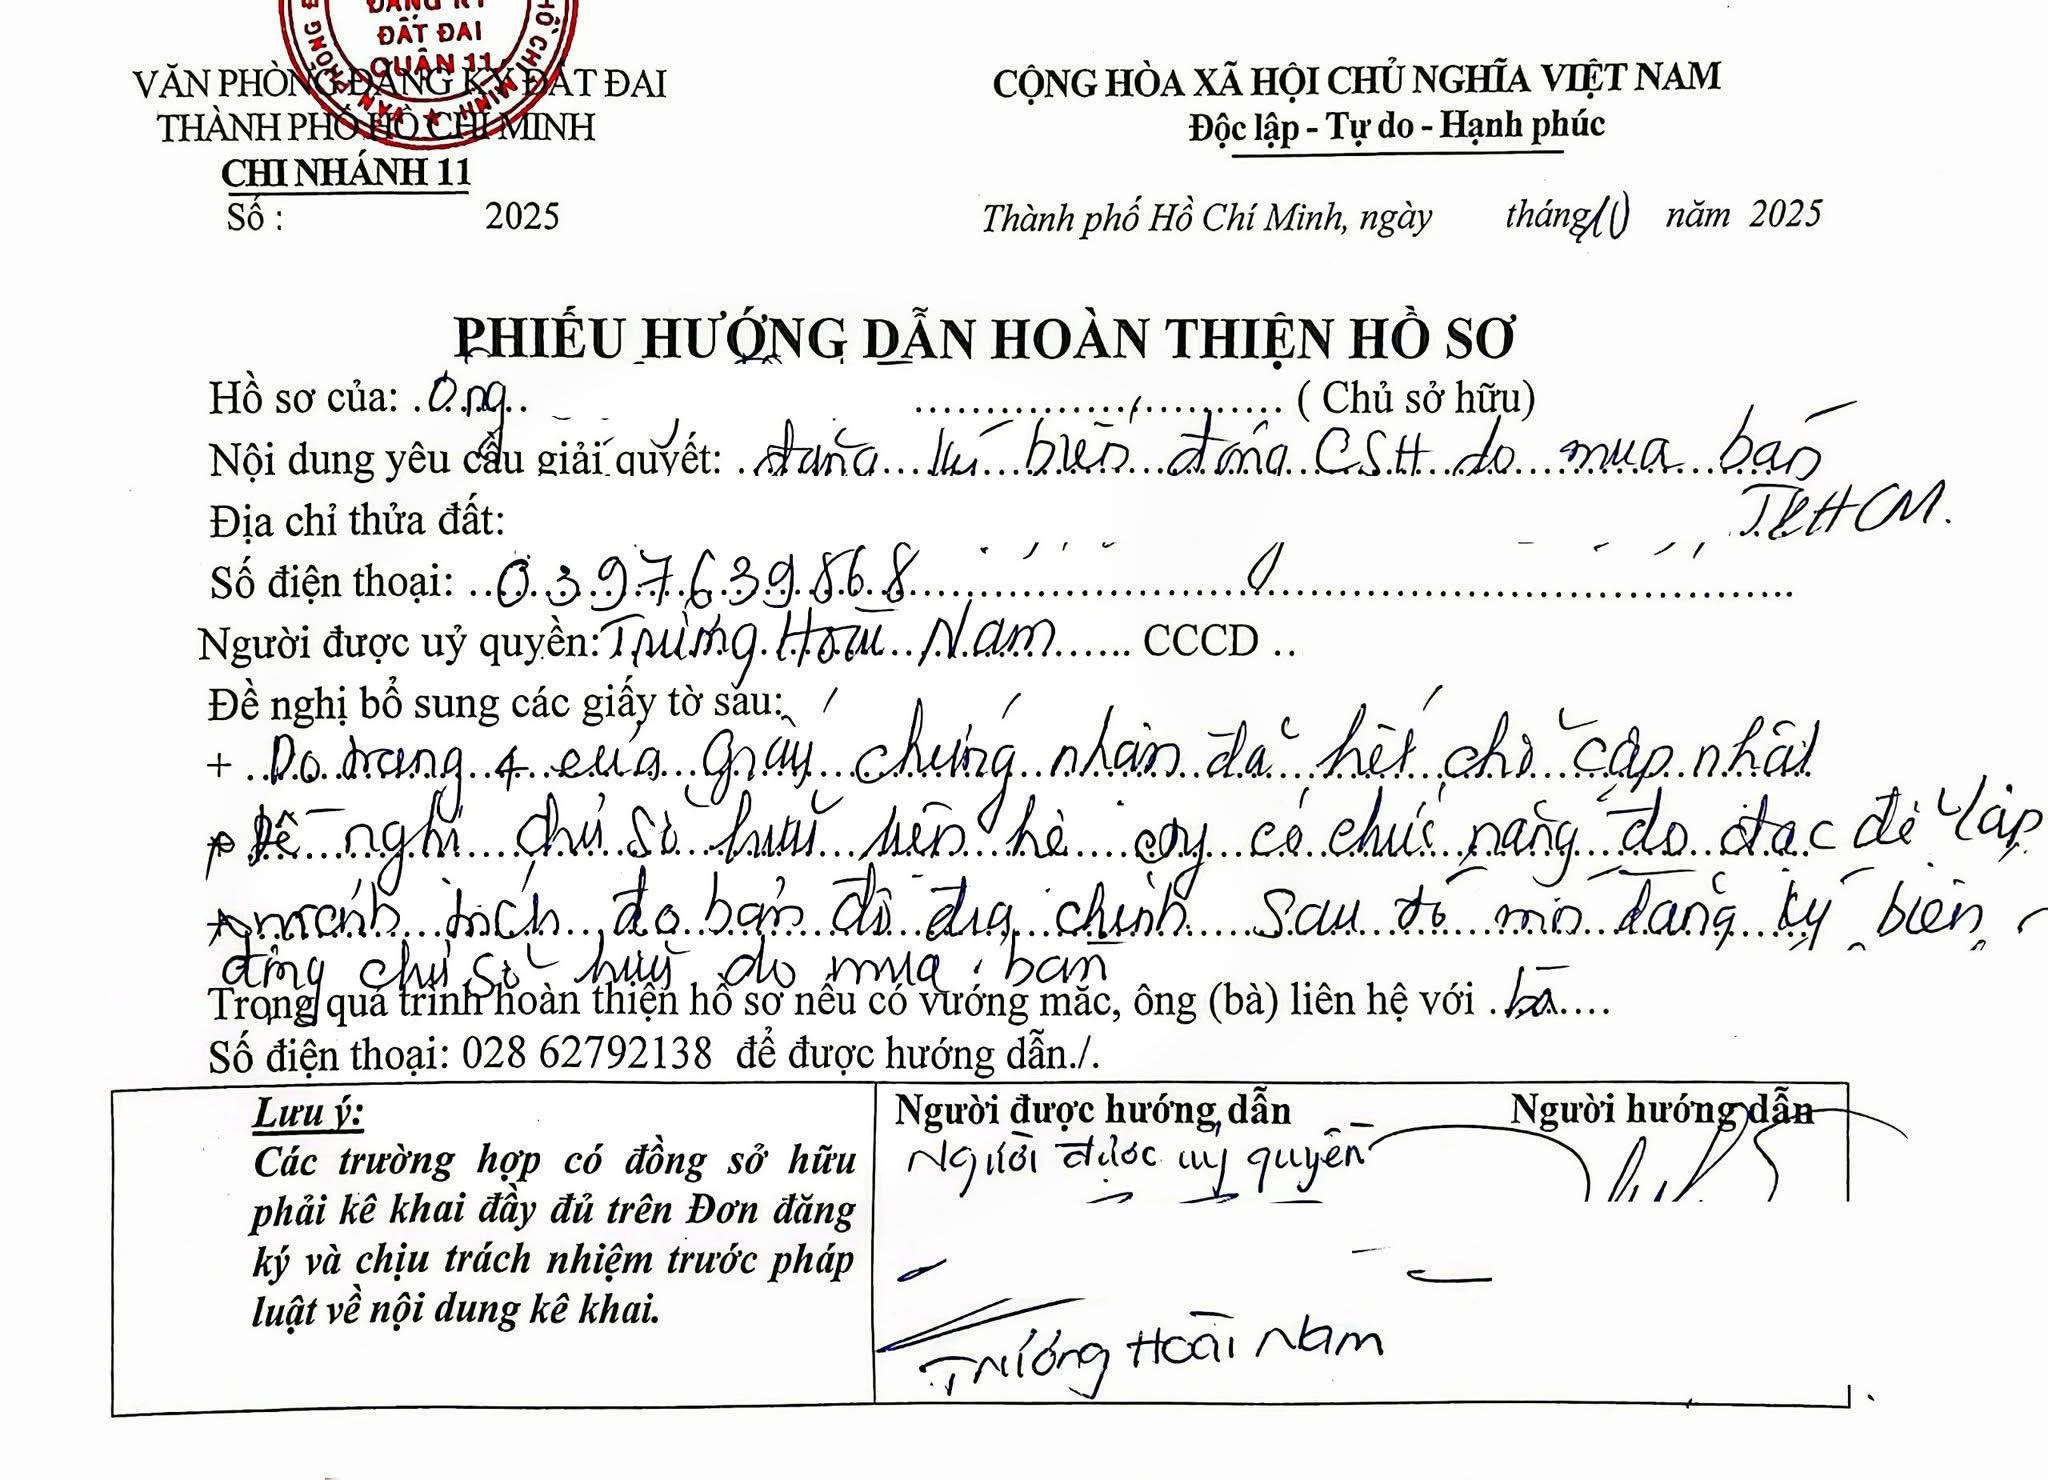 ĐĂNG KÝ
ĐẤT ĐAI
QUẬN 11
VĂN PHÒNG ĐĂNG KÝ ĐẤT ĐAI
THÀNH PHỐ HỒ CHÍ MINH
CHI NHÁNH 11
Số : 2025
CỘNG HÒA XÃ HỘI CHỦ NGHĨA VIỆT NAM
Độc lập - Tự do - Hạnh phúc
Thành phố Hồ Chí Minh, ngày tháng 10 năm 2025
PHIẾU HƯỚNG DẪN HOÀN THIỆN HỒ SƠ
Hồ sơ của: Ông ( Chủ sở hữu)
Nội dung yêu cầu giải quyết: đăng kí biến động CSH do mua bán
Địa chỉ thửa đất: TPHCM.
Số điện thoại: 0397639868
Người được uỷ quyền: Trương Hoài Nam CCCD ..
Đề nghị bổ sung các giấy tờ sau:
+ Do trang 4 của Giấy chứng nhận đã hết chỗ cập nhật
Đề nghị chủ sở hữu liên hệ cty có chức năng đo đạc để lập
mảnh trích đo bản đồ địa chính sau đó mới đăng ký biến
động chủ sở hữu do mua bán
Trong quá trình hoàn thiện hồ sơ nếu có vướng mắc, ông (bà) liên hệ với bà
Số điện thoại: 028 62792138 để được hướng dẫn./.
Lưu ý:
Các trường hợp có đồng sở hữu
phải kê khai đầy đủ trên Đơn đăng
ký và chịu trách nhiệm trước pháp
luật về nội dung kê khai.
Người được hướng dẫn
Người được uỷ quyền
Trương Hoài Nam
Người hướng dẫn